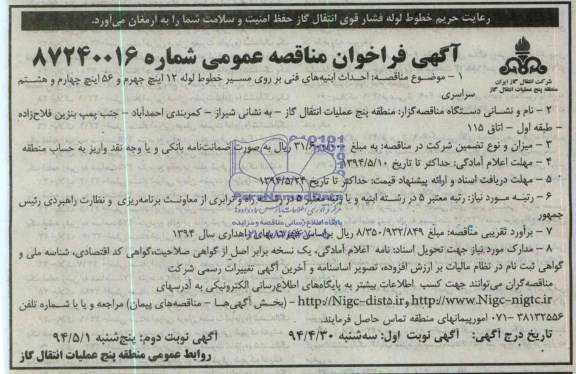 رعایت حریم خطوط لوله فشار قوی انتقال گاز حفظ امنیت و سلامت شما را به ارمغان می‌آورد.
آگهی فراخوان مناقصه عمومی شماره ۸۷۲۴۰۰۱۶
شرکت انتقال گاز ایران
منطقه پنج عملیات انتقال گاز
۱ - موضوع مناقصه: احداث ابنیه‌های فنی بر روی مسیر خطوط لوله ۱۲ اینچ جهرم و ۵۶ اینچ چهارم و هشتم
سراسری
۲ - نام و نشانی دستگاه مناقصه‌گزار: منطقه پنج عملیات انتقال گاز - به نشانی شیراز - کمربندی احمدآباد - جنب پمپ بنزین فلاح‌زاده
- طبقه اول - اتاق ۱۱۵
۳ - میزان و نوع تضمین شرکت در مناقصه: به مبلغ ریال به صورت ضمانت‌نامه بانکی و یا وجه نقد واریز به حساب منطقه
۴ - مهلت اعلام آمادگی: حداکثر تا تاریخ ۱۳۹۴/۵/۱۰
۵ - مهلت دریافت اسناد و ارائه پیشنهاد قیمت: حداکثر تا تاریخ ۱۳۹۴/۵/۲۴
۶ - رتبه مورد نیاز: رتبه معتبر ۵ در رشته ابنیه و یا رتبه معتبر ۵ در رشته راه و ترابری از معاونت برنامه‌ریزی و نظارت راهبردی رئیس
جمهور
۷ - برآورد تقریبی مناقصه: مبلغ ۸/۳۵۰/۹۳۲/۸۴۹ ریال براساس فهرست بهای راهداری سال ۱۳۹۴
۸ - مدارک مورد نیاز جهت تحویل اسناد: نامه اعلام آمادگی، یک نسخه برابر اصل از گواهی صلاحیت، گواهی کد اقتصادی، شناسه ملی و
گواهی ثبت نام در نظام مالیات بر ارزش افزوده، تصویر اساسنامه و آخرین آگهی تغییرات رسمی شرکت
مناقصه‌گران می‌توانند جهت کسب اطلاعات بیشتر به پایگاه‌های اطلاع‌رسانی الکترونیکی به آدرسهای
http://www.Nigc-nigtc.ir و http://Nigc-dist5.ir - (بخش آگهی‌ها - مناقصه‌های پیمان) مراجعه و یا با شماره تلفن
۳۸۱۳۲۵۵۶ -۰۷۱ امورپیمانهای منطقه تماس حاصل فرمایند.
تاریخ درج آگهی: آگهی نوبت اول: سه‌شنبه ۹۴/۴/۳۰ آگهی نوبت دوم: پنج‌شنبه ۹۴/۵/۱
روابط عمومی منطقه پنج عملیات انتقال گاز